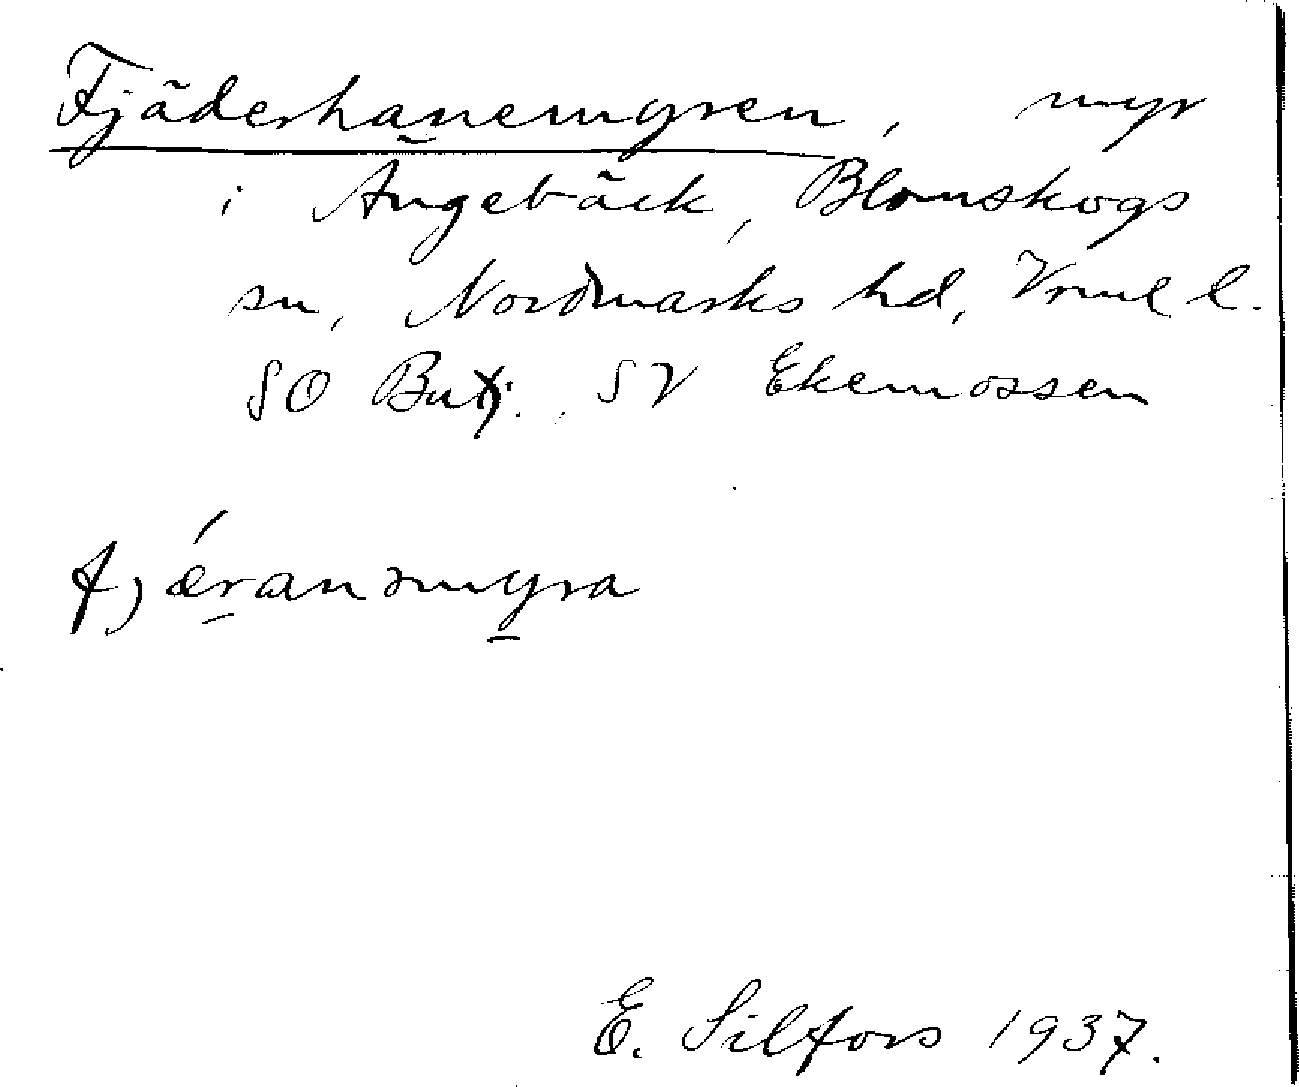 Fjäderhanemyren, myr
i Ängebäck, Blomskogs
sn, Nordmarks hd, Vrml l.
SO SV Ekemossen
fjǽranəmyra
E. Silfors 1937.